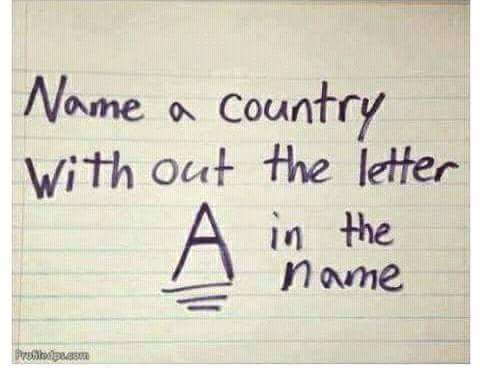 Name a country
With out the letter
A in the
name
Profiledps.com